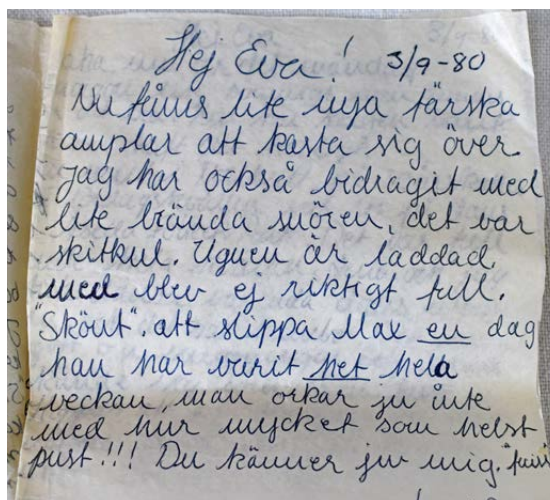 Hej Eva! 3/9-80
Nu finns lite nya färska
amplar att kasta sig över.
Jag har också bidragit med
lite brända snören, det var
skitkul. Ugnen är laddad.
med blev ej riktigt full.
"Skönt". att slippa Max en dag
han har varit het hela
veckan, man orkar ju inte
med hur mycket som helst
pust!!! Du känner ju mig.